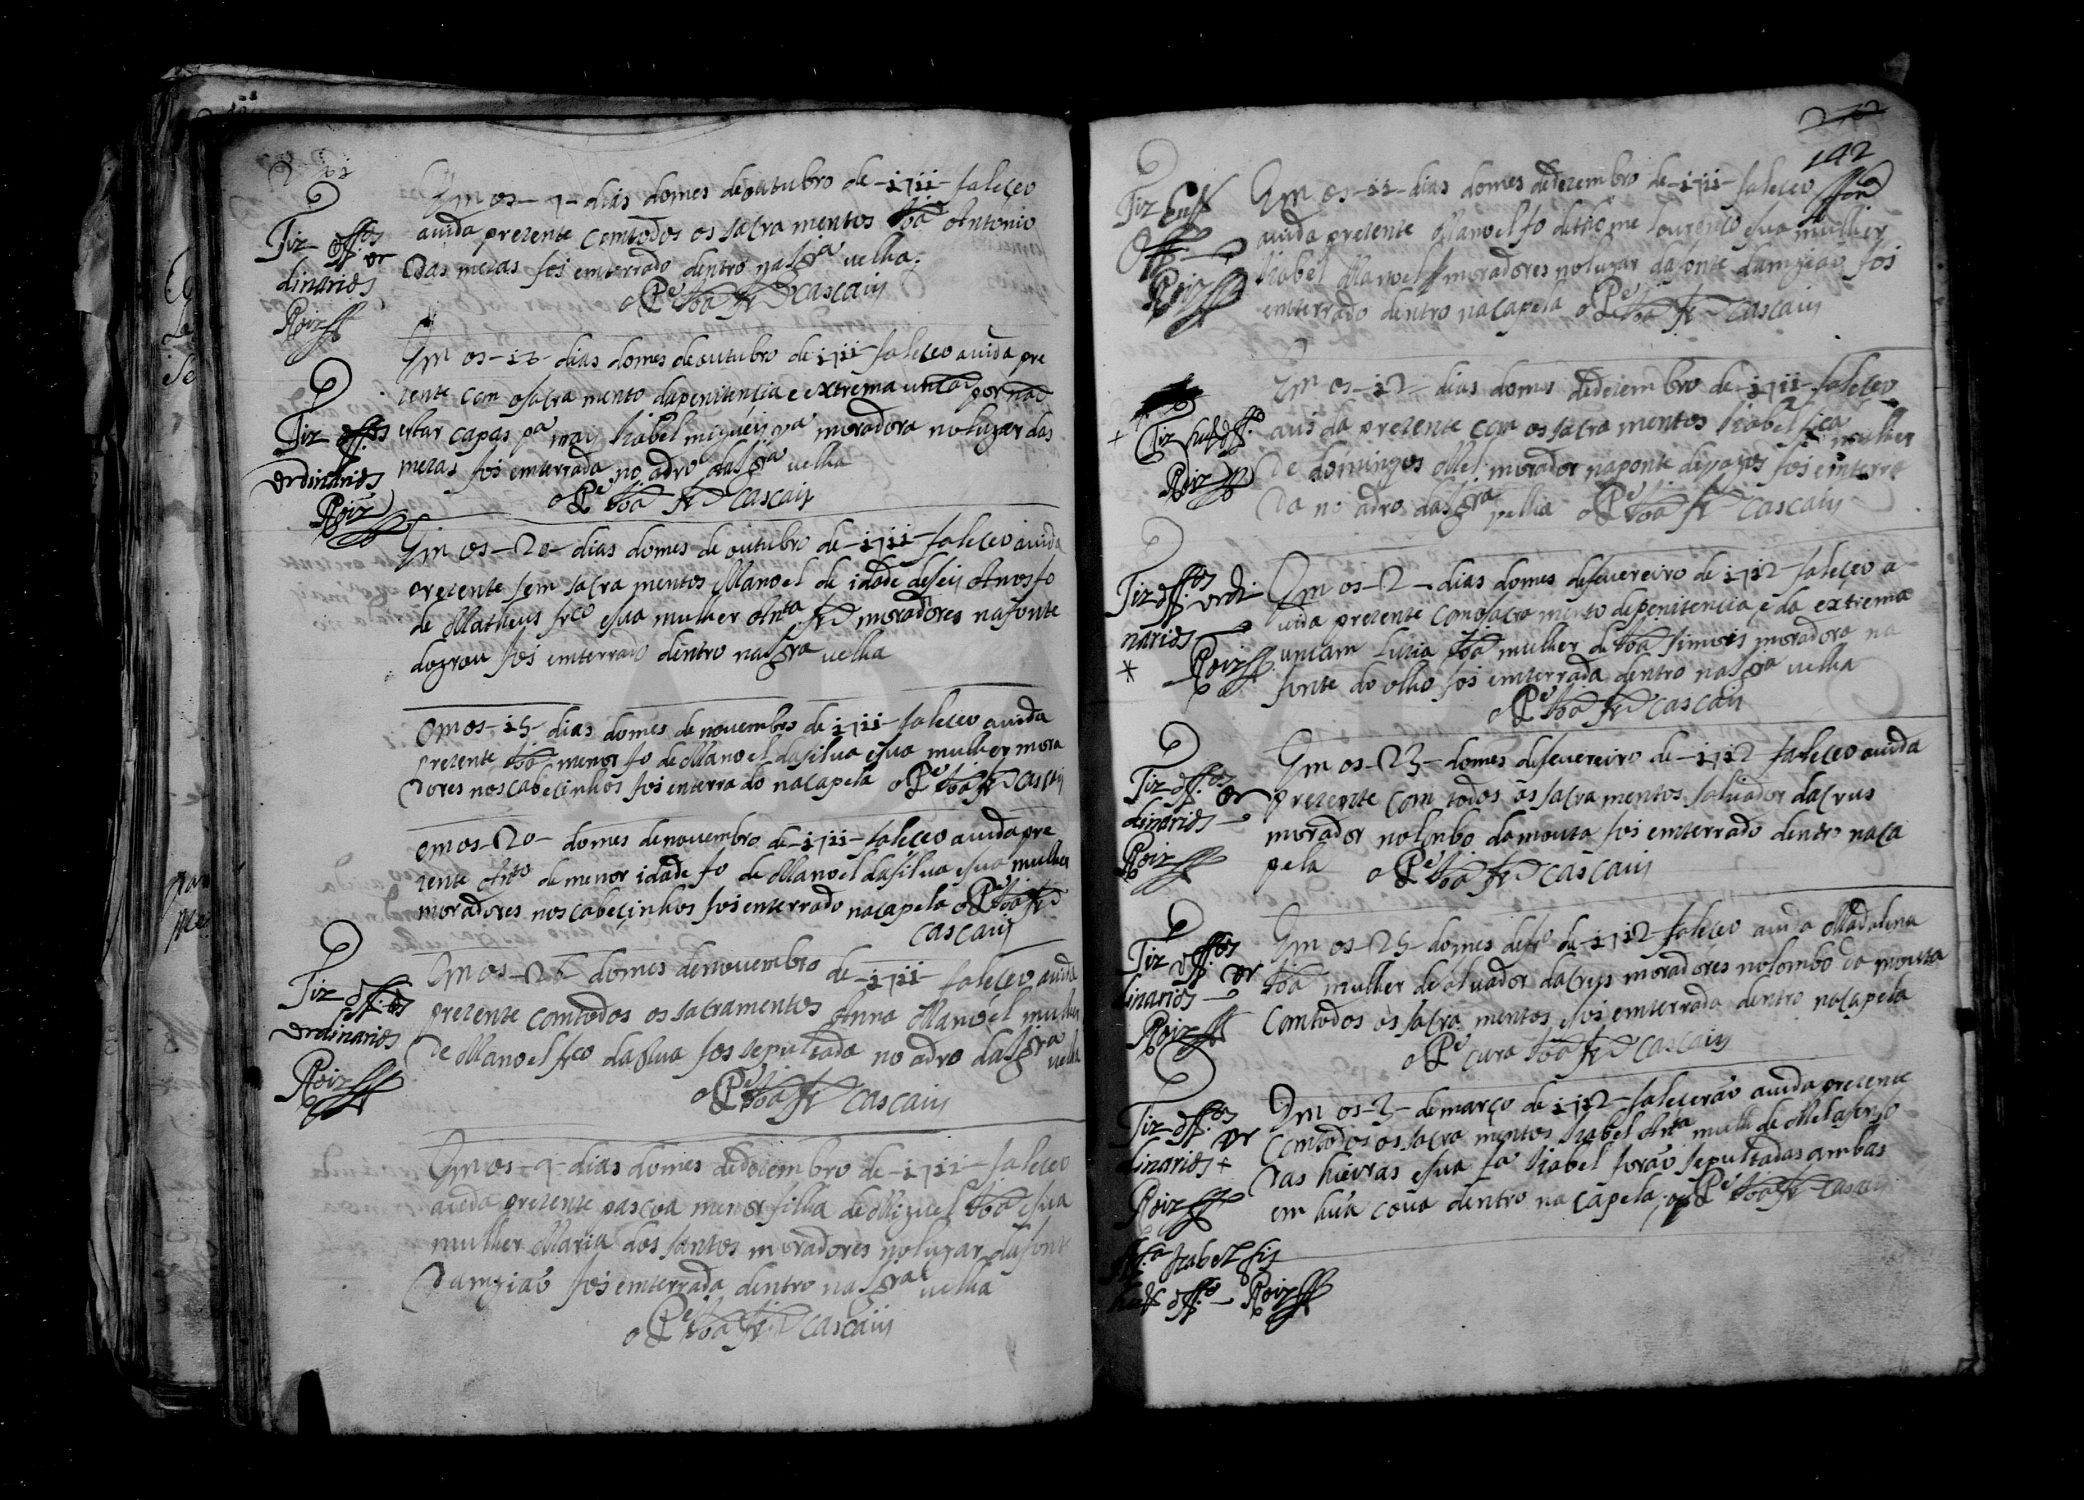 Em os - 9 - dias domes de outubro de - 1711 - faleçeo
auida prezente comtodos os sacramentos Joaõ Antonio
das mezas foi emterrado dentro na Igrª velha.
o Pe Joaõ frz cascais
Fiz offos or
dinarios
Roiz
Em os - 12 - dias domes de outubro de 1711 - faleçeo auida pre
zente com osacramento dapenitençia e extrema unçaõ por naõ
estar capas pª mais Izabel migueis vª moradora nolugar das
mezas foi emterrada no adro da Igrª velha
o Pe Joaõ frz cascais
Fiz offos
ordinarios
Roiz
Em os - 20 - dias domes de outubro de - 1711 - faleçeo auida
prezente sem sacramentos Manoel de idade deseis Annos fo
de Matheus frco esua mulher Anta frz moradores nafonte
dograu foi emterrado dentro na Igra velha
Em os - 15 - dias domes de nouembro de 1711 - faleceo auida
prezente Joaõ menor fo de Manoel dasilua esua mulher mora
dores noscabeçinhos foi enterrado nacapela o Pe Joaõ frz cascais
em os - 20 - domes denouembro de - 1711 - faleceo auida pre
zente Anto de menor idade fo de Manoel dasilua esua mulher
moradores noscabeçinhos foi enterrado nacapela o Pe Joaõ frz
cascais
Em os - 26 - domes denouembro de - 1711 - faleceo auida
prezente comtodos os sacramentos Anna Manoel mulher
de Manoel frco foi sepultada no adro da Igra velha
o Pe Joaõ frz cascais
Fiz offos
ordinarios
Roiz
Em os - 9 - dias domes dedezembro de - 1711 - faleceo
auida prezente pascoa menor filha de Miguel Joaõ esua
mulher Maria dos santos moradores nolugar dafonte
damiaõ foi emterrada dentro na Igra velha
o Pe Joaõ frz cascais
192
Em os - 11 - dias domes dedezembro de - 1711 - faleceo
auida prezente Manoel fo dethome Lourenço esua mulher
Izabel Manoel moradores nolugar dafonte damiaõ foi
emterrado dentro nacapela o Pe Joaõ frz cascais
Fiz
Off
Roiz
Em os - 12 - dias domes dedezembro de - 1711 - faleceo
auida prezente com os sacramentos Izabel
mulher
de domingos Mel morador naponte foi emterra
da no adro da Igra velha o Pe Joaõ frz cascais
Fiz
Roiz
Em os - 2 - dias domes defeuereiro de 1712 - faleçeo a
uida prezente comosacramento depenitencia e da extrema
unçam Luzia Joaõ mulher de Joaõ simois moradora na
fonte do olho foi emterrada dentro na Igra velha
o Pe Joaõ frz cascais
Fiz offos ordi
narios
Roiz
Em os - 23 - domes defeuereiro de - 1712 faleceo auida
prezente com todos os sacramentos saluador dacrus
morador nolombo damouta foi emterrado dentro naca
pela o Pe Joaõ frz cascais
Fiz offos or
dinarios
Roiz
Em os - 25 - domes defro de - 1712 - faleceo auida Madalena
Joaõ mulher desaluador dacrus moradores nolombo da mouta
Comtodos os sacramentos efoi emterrada dentro nacapela
o Pe cura Joaõ frz cascais
Fiz offos or
dinarios
Roiz
Em os - 3 - demarço de 1712 - falecerão auida prezente
comtodos os sacramentos Izabel Anta mulher de Mel afonso
das hieiras esua fa Izabel foraõ sepultadas ambas
em huã coua dentro na capela o Pe Joaõ frz cascais
Fiz offos or
dinarios +
Roiz
fa Izabel fis
offo Roiz